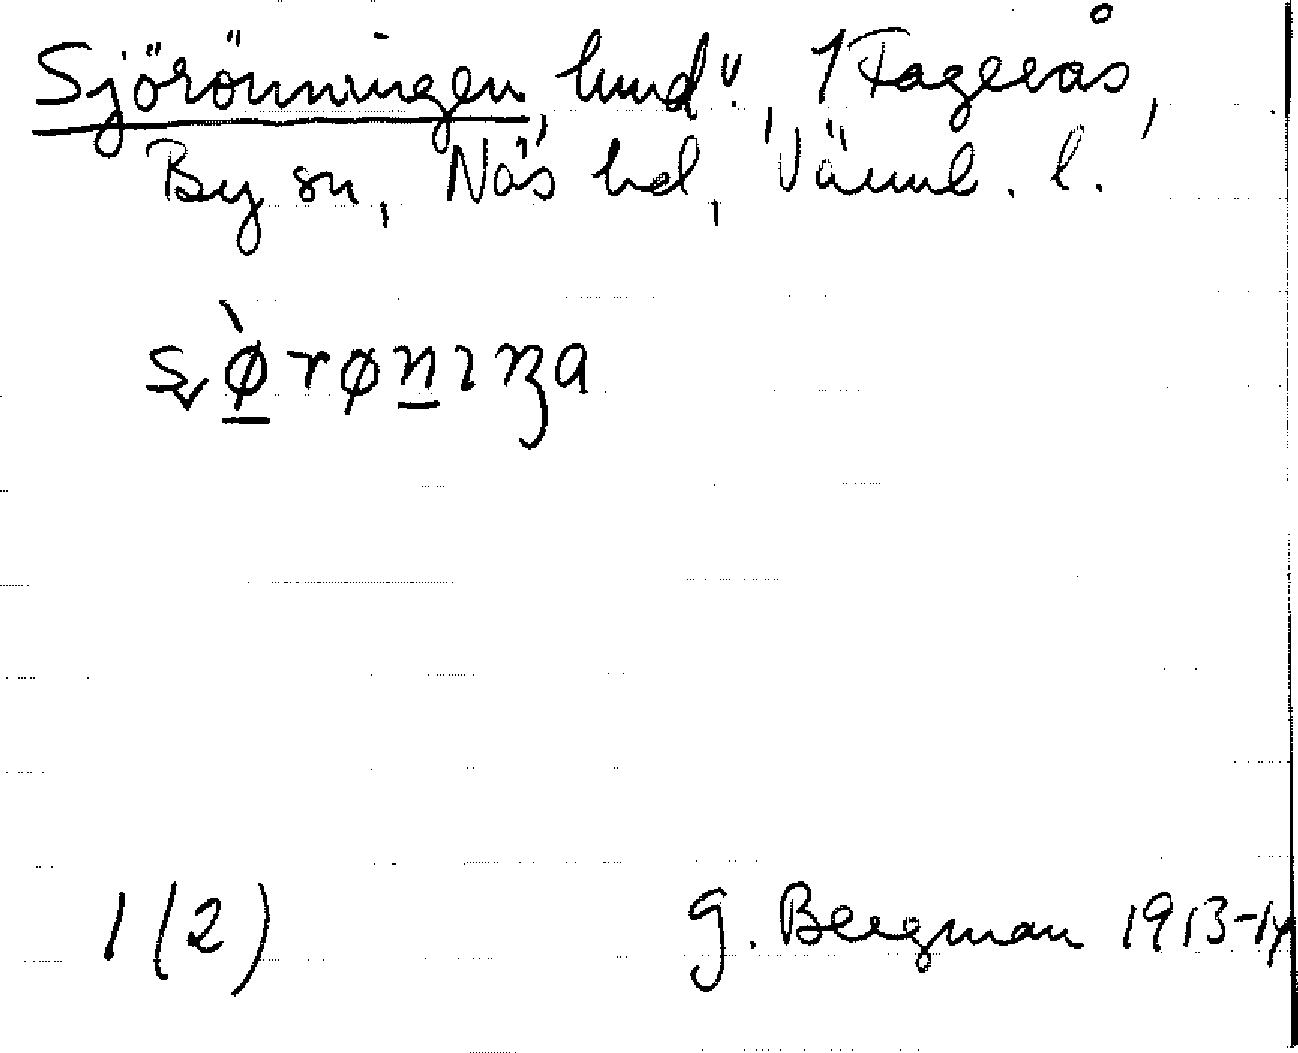 Sjörönningen, hmd", 1 Fagerås,
By sn, Näs hd, Värml. l.
sø̀rønıŋa
1 (2) G. Bergman 1913-14